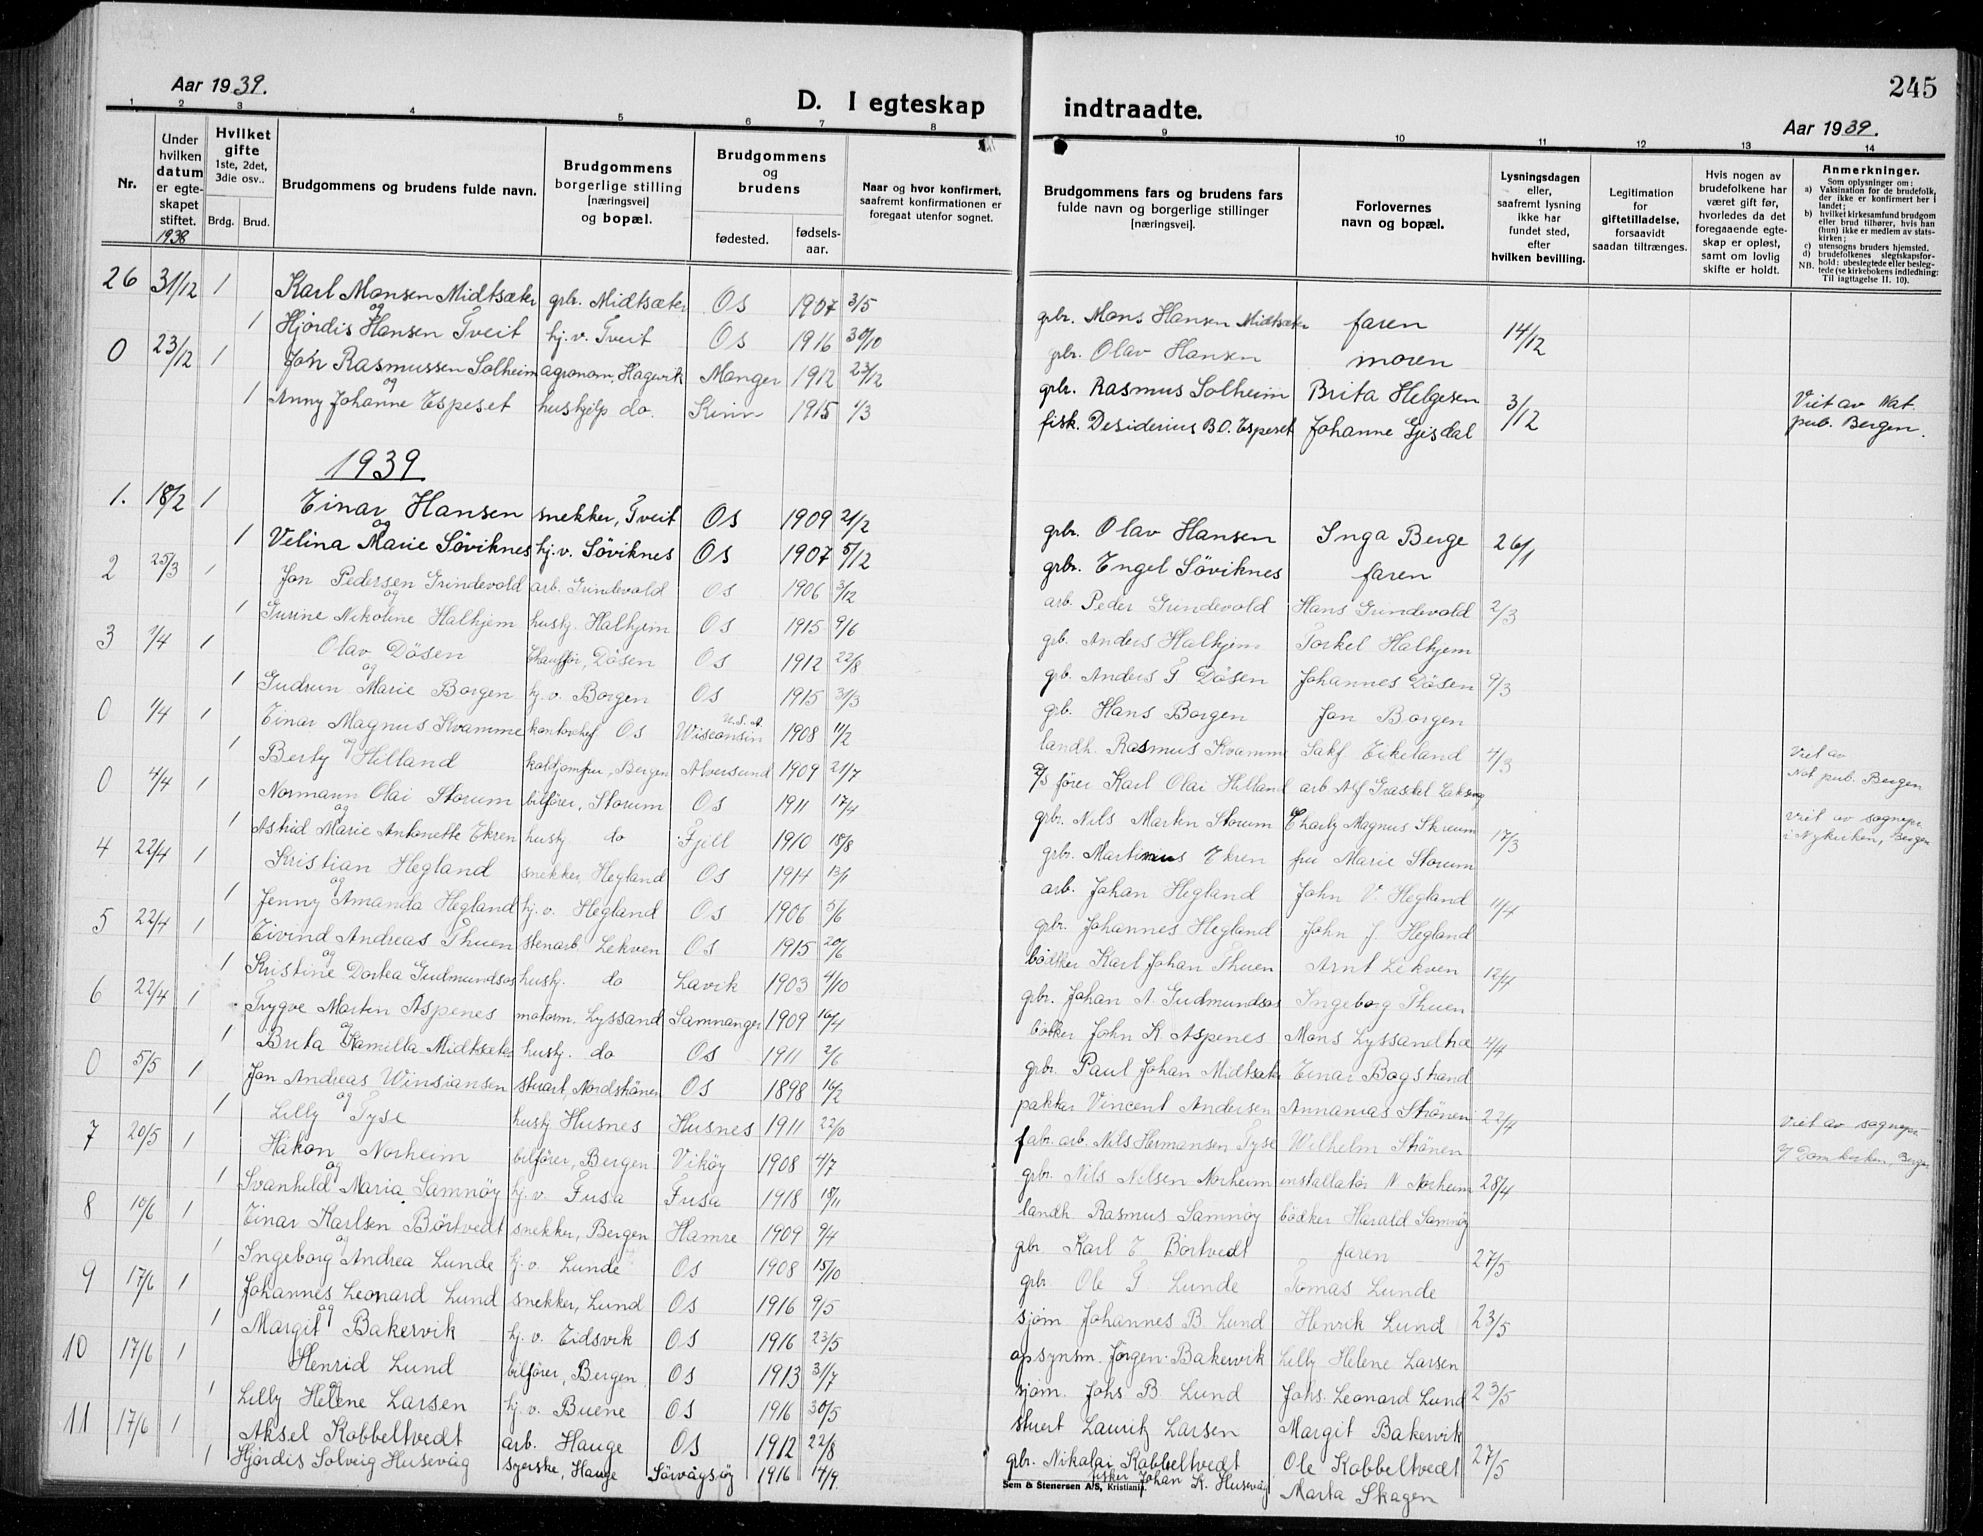 245
Aar 1939.
D. I egteskap indtraadte.
Aar 1939.
1 2 3 4 5 6 7 8 9 10 11 12 13 14
Nr.
Under hvilken datum er egteskapet stiftet.
1938
Hvilket gifte
1ste, 2det, 3die osv..
Brdg. Brud.
Brudgommens og brudens fulde navn.
Brudgommens borgerlige stilling [næringsvei] og bopæl.
Brudgommens og brudens
fødested. fødsels-aar.
Naar og hvor konfirmert, saafremt konfirmationen er foregaat utenfor sognet.
Brudgommens fars og brudens fars fulde navn og borgerlige stillinger [næringsvei].
Forlovernes navn og bopæl.
Lysningsdagen eller, saafremt lysning ikke har fundet sted, efter hvilken bevilling.
Legitimation for giftetilladelse, forsaavidt saadan tiltrænges.
Hvis nogen av brudefolkene har været gift før, hvorledes da det foregaaende egteskap er opløst, samt om lovlig skifte er holdt.
Anmerkninger.
Som oplysninger om:
a) Vaksination for de brudefolk, der ikke er konfirmert her i landet;
b) hvilket kirkesamfund brudgom eller brud tilhører, hvis han (hun) ikke er medlem av statskirken;
c) utensogns bruders hjemsted.
d) brudefolkenes slegtskapsforhold: ubeslegtede eller beslegtede (se kirkebokens indledning: Til iagttagelse II. 10).
NB.
26 31/12 1 Karl Monsen Midtsæter grbr. Midtsæter Os 1907 3/5 grbr. Mons Hansen Midtsæter faren 14/12
og
1 Hjördis Hansen Tveit hj. v. Tveit Os 1916 30/10 grbr. Olav Hansen moren
0 23/12 1 Joh Rasmussen Solheim agronom, Hagevik Manger 1912 23/12 grbr. Rasmus Solheim Brita Helgesen 3/12 Viet av Not.
og
1 Anny Johanne Espeset hushjelp do. Kinn 1915 1/3 fisk. Desiderius B.O. Espeset Johanne Gjisdal pub. Bergen.
1939
1. 18/2 1 Einar Hansen snekker, Tveit Os 1909 21/2 grbr. Olav Hansen Inga Berge 26/1
og
1 Velina Marie Söviknes hj. v. Söviknes Os 1907 5/12 grbr. Engel Söviknes faren
2 25/3 1 Jon Pedersen Grindevold arb. Grindevold Os 1906 3/12 arb. Peder Grindevold Hans Grindevold 2/3
og
1 Gurine Nikoline Halhjem hustj. Halhjem Os 1915 9/6 grb. Anders Halhjem Torkel Halhjem
3 1/4 1 Olav Dösen Chauffør, Dösen Os 1912 22/8 grb. Anders T Dösen Johannes Dösen 9/3
og
1 Gudrun Marie Borgen hj. v. Borgen Os 1915 31/3 grb. Hans Borgen Jon Borgen
0 1/4 1 Einar Magnus Kvamme kontorchef Os Wisconsin U.S.A. 1908 11/2 landh. Rasmus Kvamme Sakf. Eikeland 4/3 Viet av
og
1 Berty Hilland koldjomfru, Bergen Alversund 1909 21/7 D/S fører Karl Olai Hilland arb Alf Not pub. Bergen
0 4/4 1 Normann Olai Storum bilfører, Storum Os 1911 17/4 grbr. Nils Martin Storum Charly Magnus Storum 17/3 viet av sognepr.
og
1 Astrid Marie Antonette Ekren hustj do Fjell 1910 18/8 grbr. Martinus Ekren fru Marie Storum i Nykirken, Bergen
4 22/4 1 Kristian Hegland snekker, Hegland Os 1914 13/1 arb. Johan Hegland John V. Hegland 11/4
og
1 Jenny Amanda Hegland hj. v. Hegland Os 1906 5/6 grbr. Johannes Hegland John J. Hegland
5 22/4 1 Eivind Andreas Thuen stenarb Lekven Os 1915 20/6 bödker Karl Johan Thuen Arnt Lekven 12/4
og
1 Kristine Dortea Gudmundsos hustj. do Lavik 1903 4/10 grbr. Johan A. Gudmundsos Ingeborg Thuen
6 22/4 1 Trygve Martin Aspenes motorm. Lyssand Samnanger 1909 16/4 bötker John K. Aspenes Mons Lyssandtræ 4/4
og
1 Brita Kamilla Midtsæter hustj. do Os 1911 2/6 grbr. Paul Johan Midtsæter Einar Bogstrand
0 5/5 1 Jon Andreas Winsiansen stuart, Nordströnen Os 1898 16/2 pakker Vincent Andersen Annanias Strönen 22/4 Viet av sognepr.
og
1 Lilly Tyse hustj Husnes Husnes 1911 22/10 fabr. arb. Nils Hermansen Tyse Wilhelm Strönen i Domkirken, Bergen
7 20/5 1 Håkon Norheim bilfører, Bergen Viköy 1908 4/7 grbr. Nils Nilsen Norheim installatør N Norheim 28/4
og
1 Svanhild Maria Samnöy hj. v. Fusa Fusa 1918 18/11 landh. Rasmus Samnöy bödker Harald Samnöy
8 10/6 1 Einar Karlsen Börtvedt snekker, Bergen Hamre 1909 9/4 gbr Karl E Börtvedt faren 27/5
og
1 Ingeborg Andrea Lunde hj. v. Lunde Os 1908 15/10 grbr Ole T Lunde Tomas Lunde
9 17/6 1 Johannes Leonard Lund snekker, Lund Os 1916 9/5 sjöm Johannes B. Lund Henrik Lund 23/5
og
1 Margit Bakervik hj. v. Eidsvik Os 1916 23/5 opsynsm. Jörgen Bakervik Lilly Helene Larsen
10 17/6 1 Henrid Lund bilfører, Bergen Os 1913 31/7 sjöm. Johs B. Lund Johs. Leonard Lund 23/5
og
1 Lilly Helene Larsen hj. v. Buene Os 1916 30/5 stuert Lauritz Larsen Margit Bakervik
11 17/6 1 Aksel Kobbeltvedt arb. Hauge Os 1912 22/8 grbr. Nikolai Kobbeltvedt Ole Kobbeltvedt 27/5
1 Hjördis Solveig Husevåg syerske, Hauge Sörvågsöy 1916 14/9 fisker Johan K. Husevåg Marta Skagen
Sem & Stenersen A/S, Kristiania.